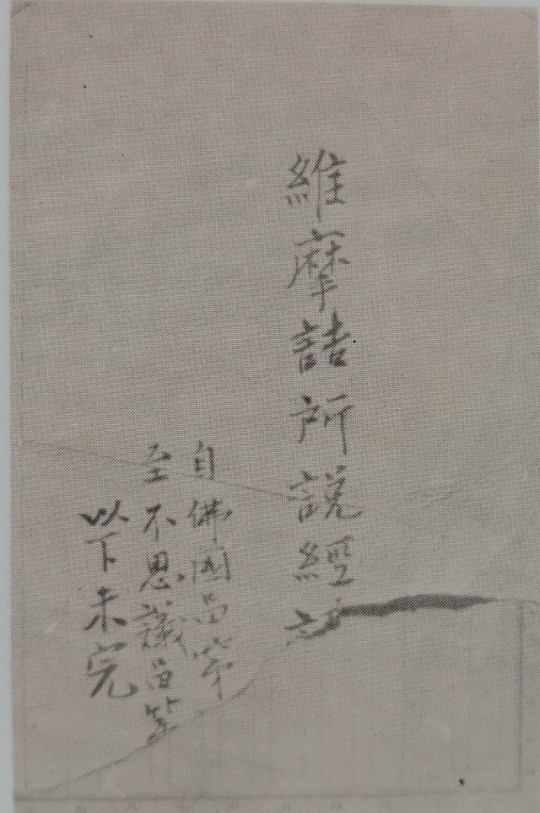 維摩詰所說經
自佛國品第
至不思議品第
以下未完